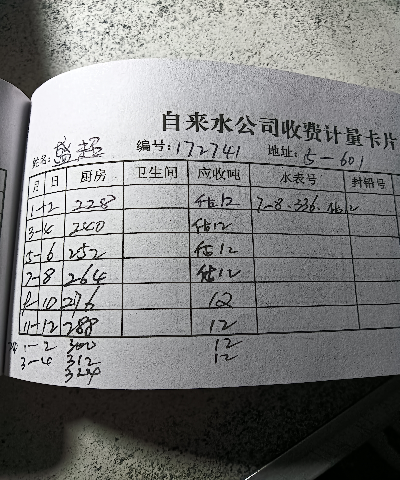 自来水公司收费计量卡片
姓名:盛超 编号:172741 地址:5-601
月 日 厨房 卫生间 应收吨 水表号 封铅号
1-2 228 估12
3-4 240 估12
5-6 252 估12
7-8 264 估12
9-10 276 12
11-12 288 12
1-2 300 12
3-4 312 12
324